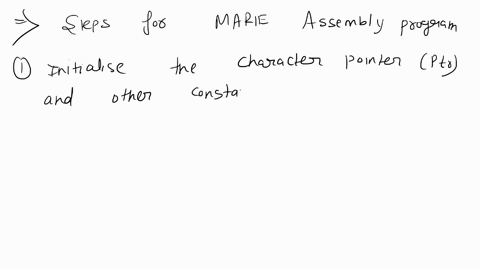 ⇒ Steps for MARIE Assembly program
① Initialise the character pointer (Ptr)
and other consta